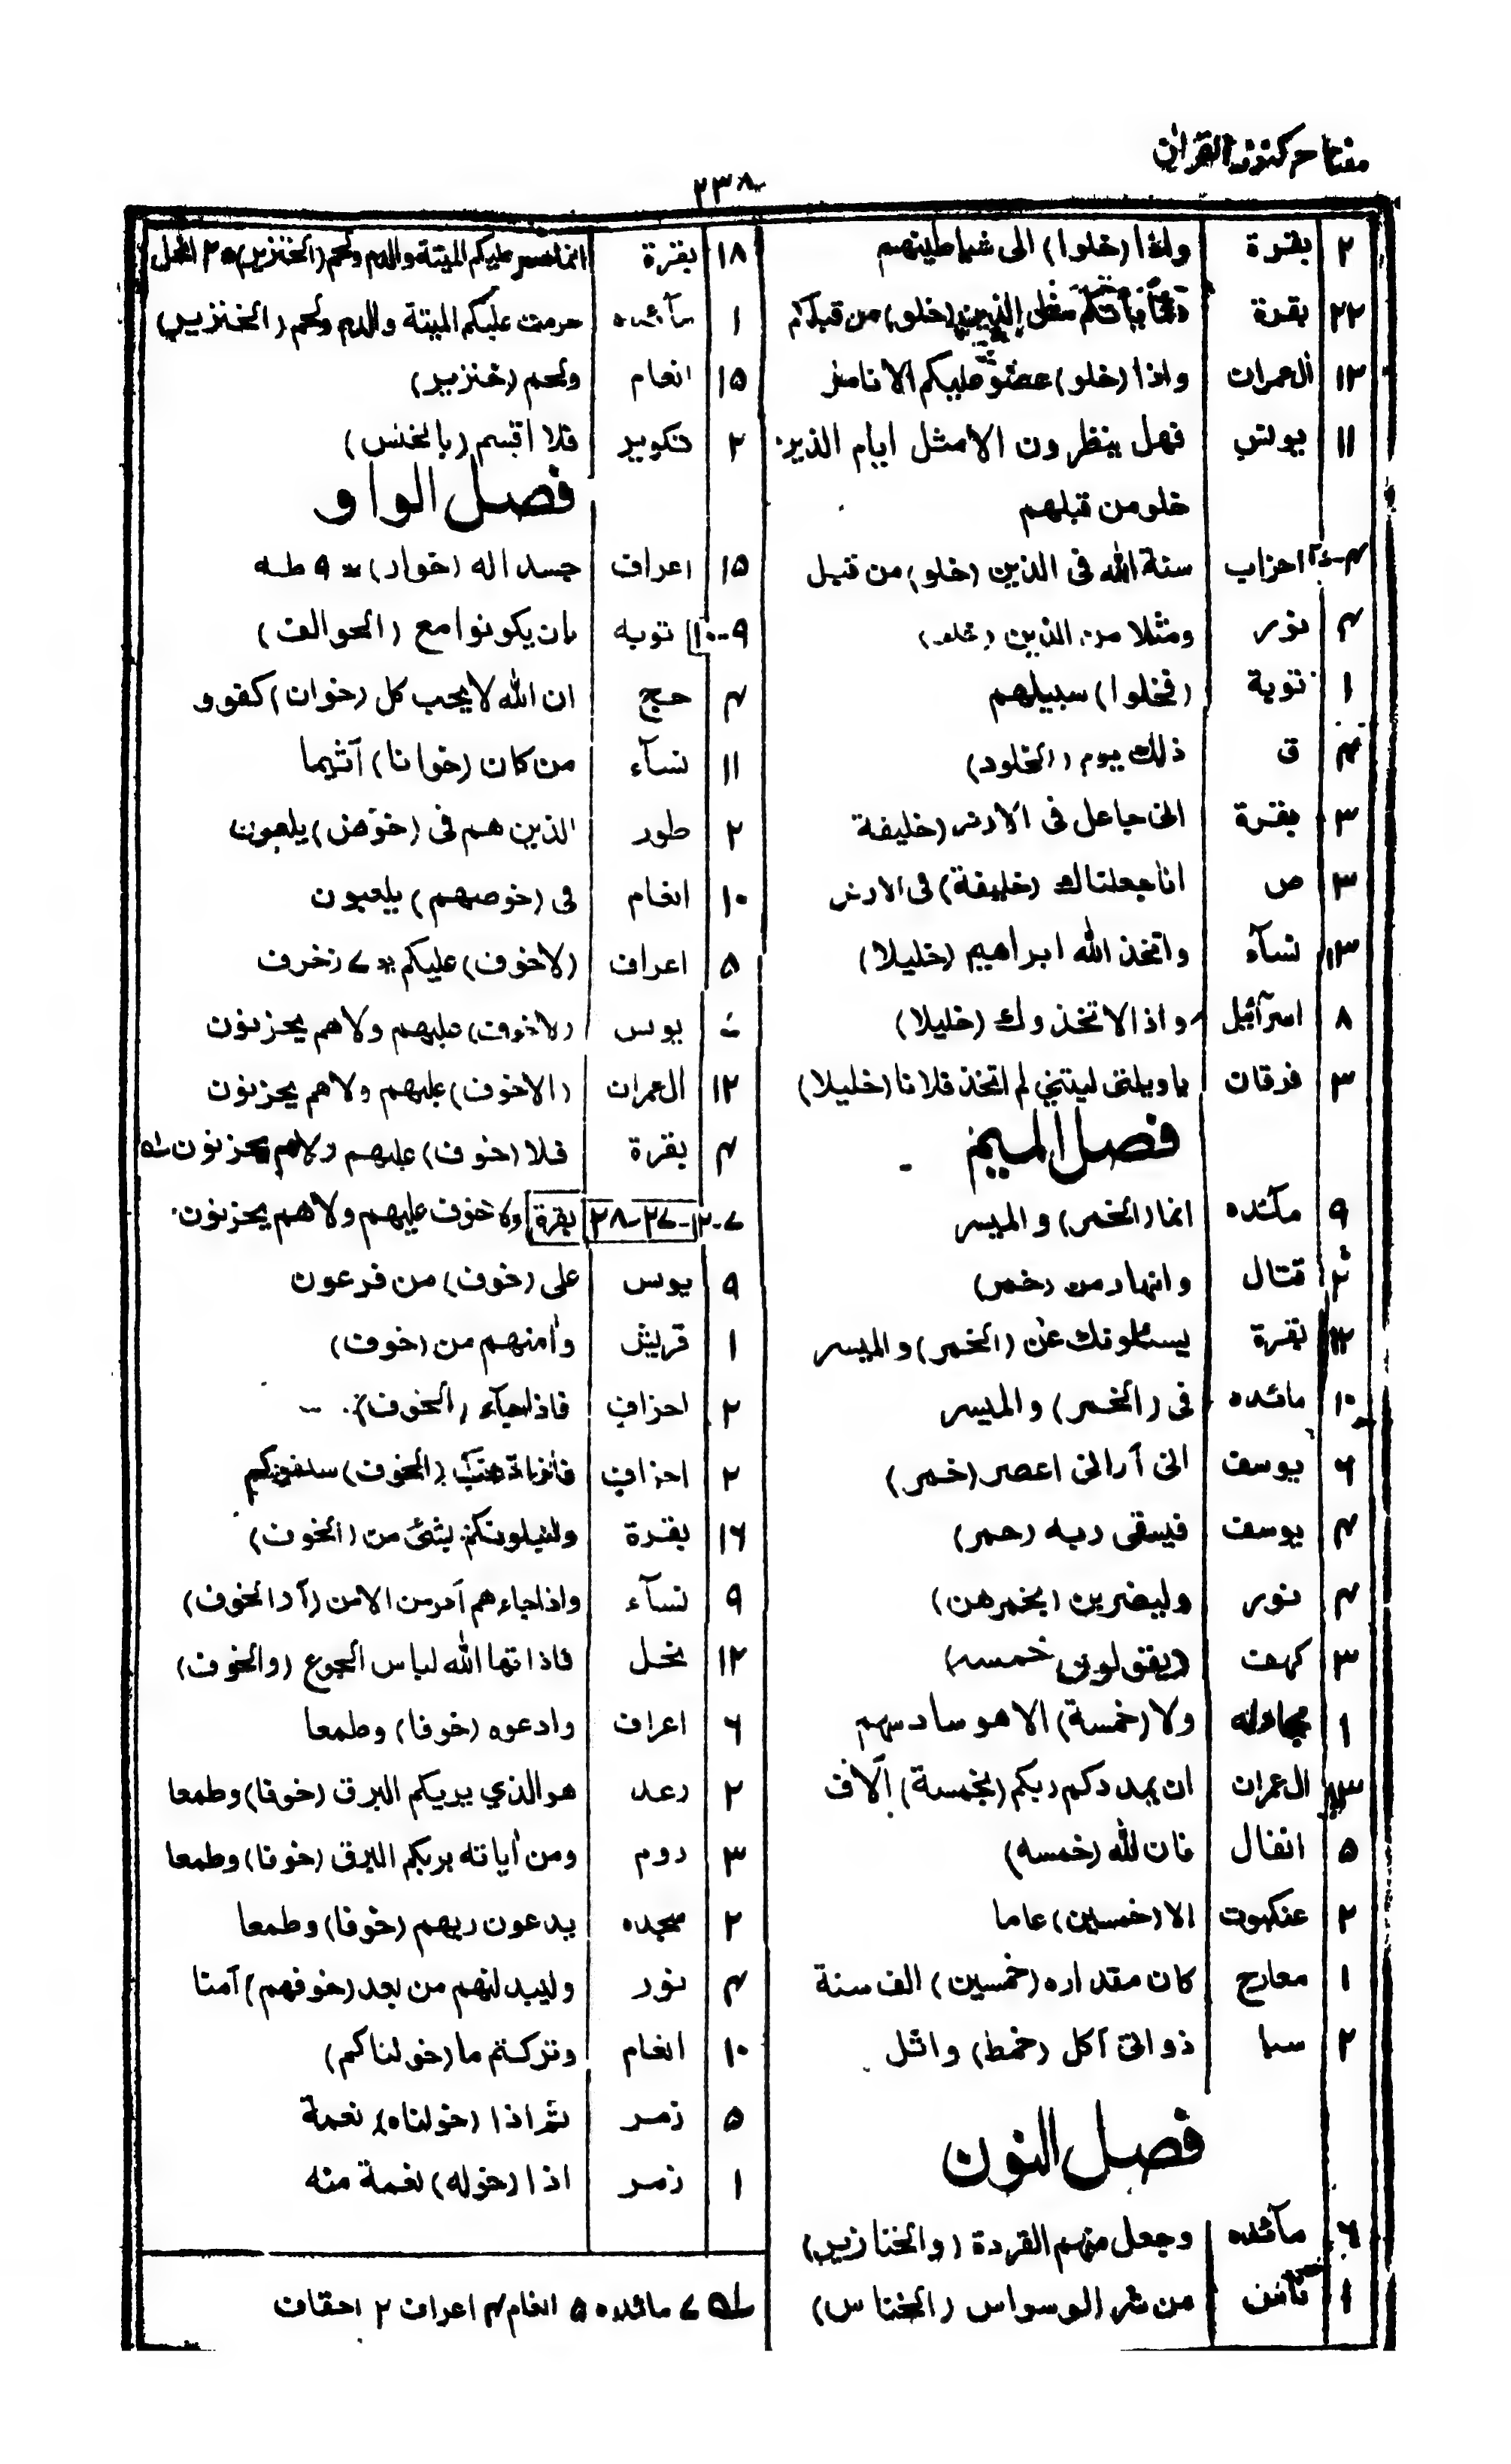 مفتاح كنوز القران
٢٣٨
٢ بقرة واذا (خلوا) الى شياطينهم
٢٢ بقرة يأتكم مثل الذين (خلو) من قبلكم
١٢ ال عمران واذا (خلو) عضو عليكم الانامل
١١ يونس فهل ينظرون الامثل ايام الذين
خلو من قبلهم
احزاب سنة الله فى الذين (خلو) من قبل
۴ نور ومثلا من الذين (خلو)
١ توبة (فخلوا) سبيلهم
ق ذلك يوم (الخلود)
٣ بقرة انى جاعل فى الارض (خليفة
٣ ص انا جعلناك (خليفة) فى الارض
١٣ نسآء واتخذ الله ابراهيم (خليلا)
٨ اسرآئيل واذا لاتخذوك (خليلا)
٣ فرقان ياويلتى ليتني لم اتخذ فلانا (خليلا)
فصل الميم
٩ مآئده انما (الخمر) و الميسر
٢ قتال وانهار من (خمر)
بقرة يسئلونك عن (الخمر) و الميسر
١٠ مائده فى (الخمر) و الميسر
۶ يوسف انى آرانى اعصر (خمر)
۴ يوسف فيسقى ربه (حمر)
۴ نور وليضربن (بخمرهن)
٣ كهف (يقولون خمسه)
١ مجادله ولا (خمسة) الا هو سادسهم
١٣ ال عمران ان يمددكم ربكم (بخمسة) آلاف
۵ انفال فان لله (خمسه)
٢ عنكبوت الا (خمسين) عاما
١ معارج كان مقداره (خمسين) الف سنة
٢ سبا ذواتى آكل (خمط) واثل
فصل النون
۶ مآئده وجعل منهم القردة (والخنازير)
١ من شر الوسواس (الخناس)
١٨ بقرة انما حرم عليكم الميتة والدم ولحم (الخنزير)
١ مآئده حرمت عليكم الميتة والدم ولحم (الخنزير)
١۵ انعام ولحم (خنزير)
٢ تكوير فلا اقسم (بالخنس)
فصل الواو
١۵ اعراف جسدا له (خوار) ٩ طه
٩-١٠ توبه بان يكونوا مع (الخوالف)
۴ حج ان الله لايحب كل (خوان) كفور
١١ نسآء من كان (خوانا) آثيما
٢ طور الذين هم فى (خوض) يلعبون
١٠ انعام فى (خوضهم) يلعبون
۵ اعراف (لاخوف) عليكم ٧ زخرف
يونس (لاخوف) عليهم ولاهم يحزنون
١٢ ال عمران (الاخوف) عليهم ولاهم يحزنون
۴ بقرة فلا (خوف) عليهم ولاهم يحزنون
٧-١٢-٣٧-٣٨ بقرة ولا خوف عليهم ولاهم يحزنون
٩ يونس على (خوف) من فرعون
١ قريش وأمنهم من (خوف)
٢ احزاب فاذا جآء (الخوف)
٢ احزاب (الخوف) سلقوكم
١۶ بقرة ولنبلونكم بشئ من (الخوف)
٩ نسآء واذا جاءهم آمر من الامن (آو الخوف)
١٢ نحل فاذاقها الله لباس الجوع (والخوف)
۶ اعراف وادعوه (خوفا) وطمعا
٢ رعد هو الذي يريكم البرق (خوفا) وطمعا
٣ روم ومن أياته يريكم البرق (خوفا) وطمعا
٢ سجده يدعون ربهم (خوفا) وطمعا
۴ نور وليبدلنهم من بعد (خوفهم) آمنا
١٠ انعام وتركتم ما (خولناكم)
۵ زمر ثم اذا (خولناه) نعمة
١ زمر اذا (خوله) نعمة منه
٧ مائده ۵ انعام ۴ اعراف ٢ احقاف